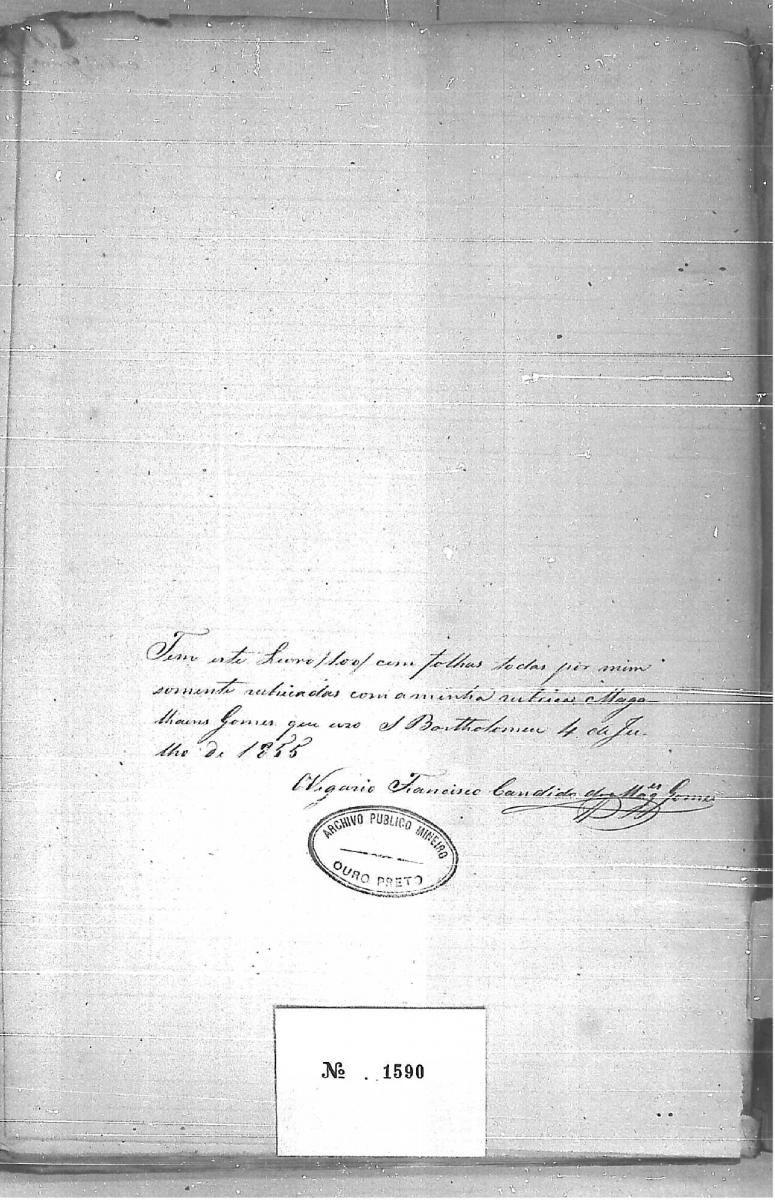 Tem este Livro /100/ cem folhas todas por mim
somente rubricadas com a minha rubrica Maga-
lhaens Gomes que uso S Bartholomeu 4 de Ju-
lho de 1855
O Vigario Francisco Candido de Mag.es Gomes
ARCHIVO PUBLICO MINEIRO
OURO PRETO
№ . 1590